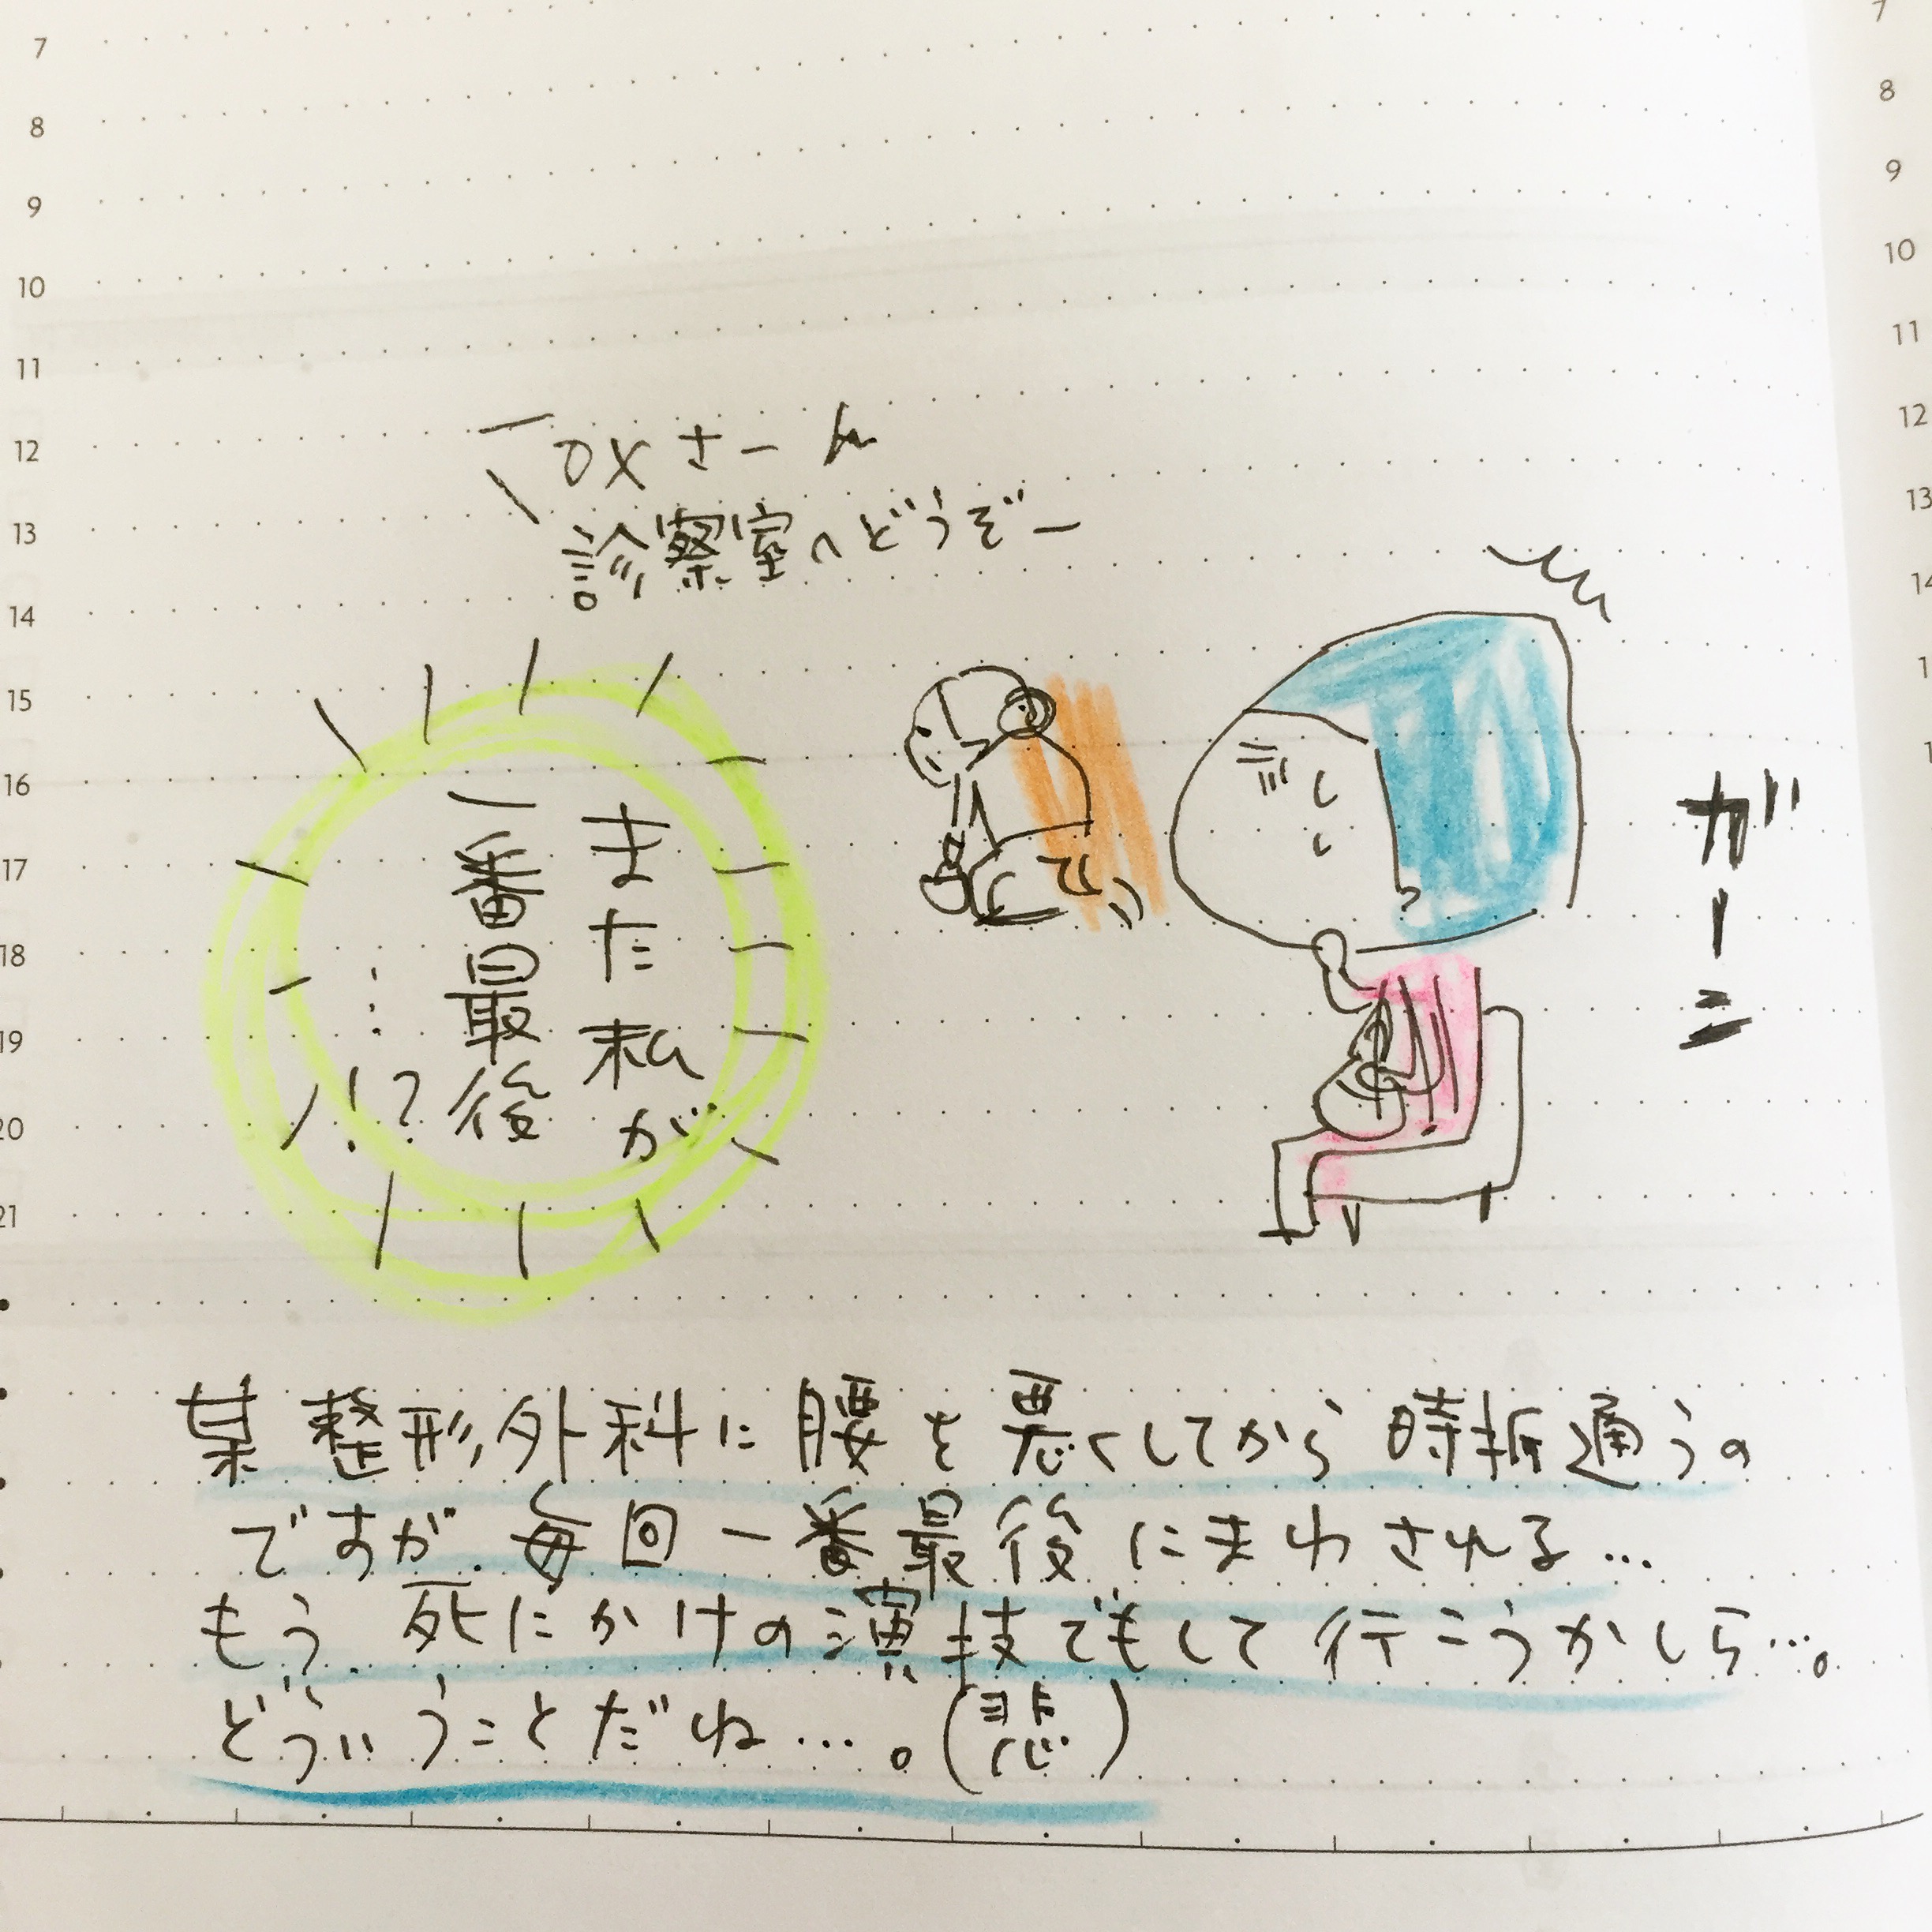 7
8
9
10
11
12
13
14
15
16
17
18
19
20
21
7
8
9
10
11
12
13
○×さーん
診察室へどうぞー
また私が
一番最後
…!?
ガーン
某整形外科に腰を悪くしてから時折通うの
ですが、毎回一番最後にまわされる…
もう、死にかけの演技でもして行こうかしら…。
どういうことだね…。(悲)